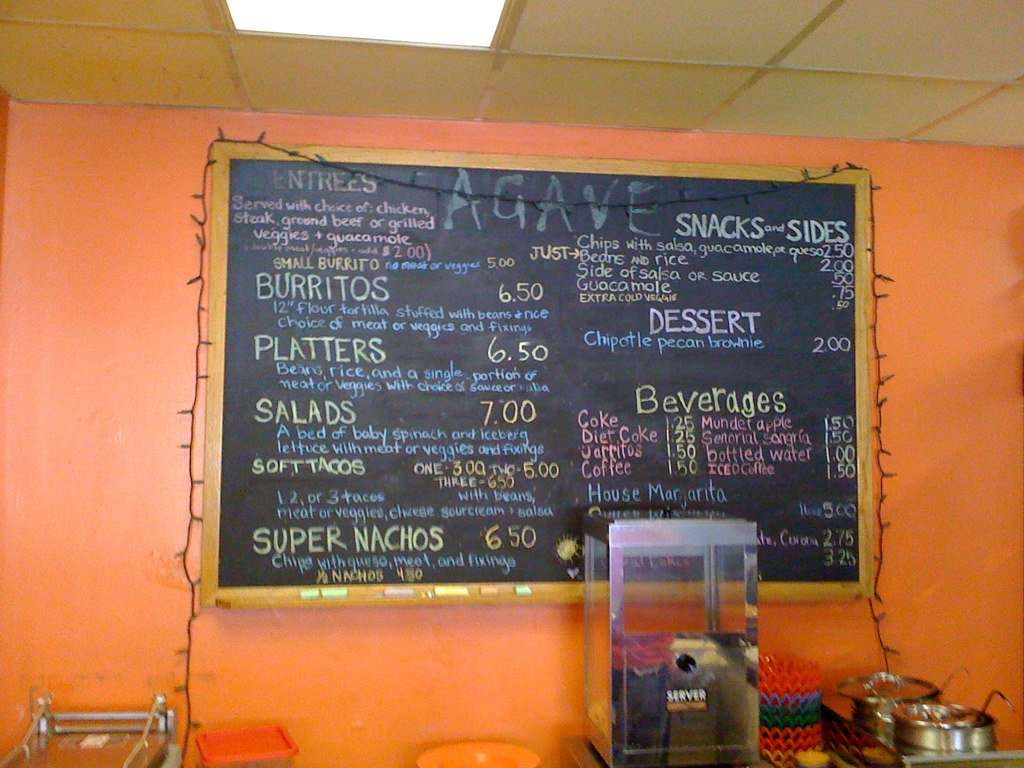 AGAVE
ENTREES
Served with choice of: chicken,
steak, ground beef or grilled
veggies + guacamole
$2.00)
SMALL BURRITO no meat or veggies 5.00
BURRITOS 6.50
12" flour tortilla stuffed with beans & rice
choice of meat or veggies and fixings
PLATTERS 6.50
Beans, rice, and a single portion of
meat or veggies with choice of sauce or salsa
SALADS 7.00
A bed of baby spinach and iceberg
lettuce with meat or veggies and fixings
SOFT TACOS ONE-3.00 TWO-5.00
THREE-6.50
1, 2, or 3 tacos with beans,
meat or veggies, cheese sour cream + salsa
SUPER NACHOS 6.50
Chips with queso, meat, and fixings
½ NACHOS 4.50
SNACKS and SIDES
Chips with salsa, guacamole, or queso 2.50
JUST→ Beans AND rice 2.00
Side of salsa OR sauce .50
Guacamole .75
EXTRA COLD VEGGIE .50
DESSERT
Chipotle pecan brownie 2.00
Beverages
Coke 1.25 Mundet apple 1.50
Diet Coke 1.25 Senorial sangria 1.50
Jarritos 1.50 bottled water 1.00
Coffee 1.50 ICED Coffee 1.50
House Margarita
5.00
Corona 2.75
3.25
SERVER